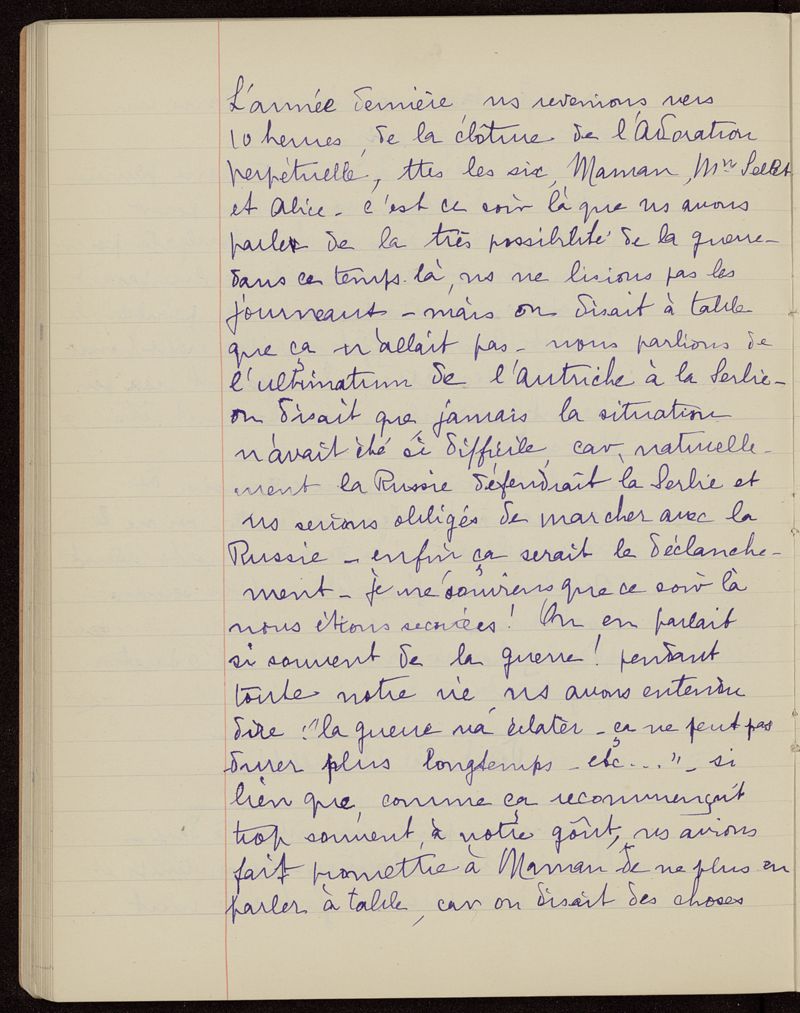 L'année dernière ns revenions vers
10 heures, de la clôture de l'Adoration
perpétuelle, ttes les six, Maman, Mlle
et Alice - c'est ce soir là que ns avons
parler de la très possibilité de la guerre -
dans ce temps-là, ns ne lisions pas les
journeaux - mais on disait à table
que ça n'allait pas - nous parlions de
l'ultimatum de l'Autriche à la Serbie -
on disait que, jamais la situation
n'avait été si difficile, car, naturelle-
ment la Russie défendrait la Serbie et
ns serions obligés de marcher avec la
Russie - enfin ça serait le déclanche-
ment - je me souviens que ce soir là
nous étions secouées! On en parlait
si souvent de la guerre! pendant
toute notre vie, ns avons entendu
dire : "la guerre va éclater - ça ne peut pas
durer plus longtemps - etc..." - si
bien que, comme ça recommençait
trop souvent, à notre goût, ns avions
fait promettre à Maman de ne plus en
parler à table, car on disait des choses